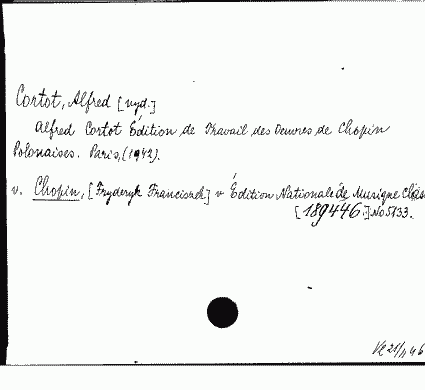 Cortot, Alfred [vyd.]
Alfred Cortot Édition de Travail des Oeuvres de Chopin
Polonaises. Paris, (1942).
v. Chopin, [Fryderyk Franciszek] v Édition Nationale de Musique Clas
[189446.] No 5133.
21/11 46